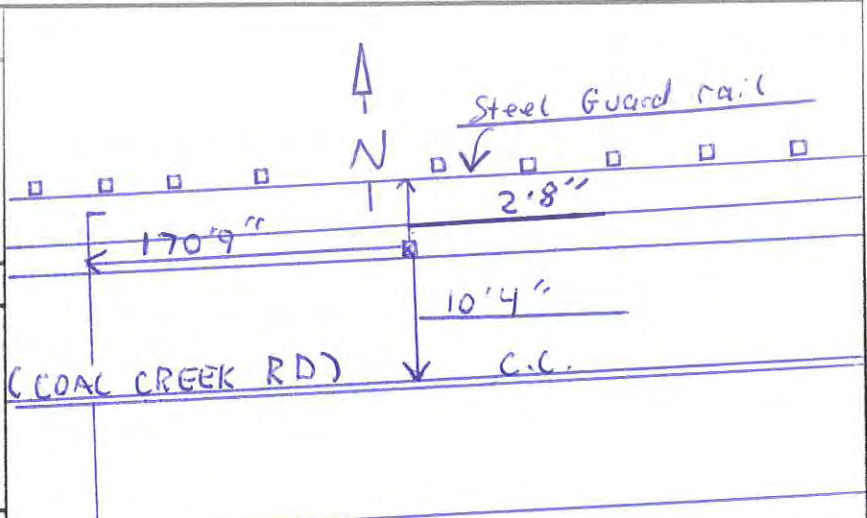 N
Steel Guard rail
2'8"
170'9"
10'4"
(COAL CREEK RD)
C.C.